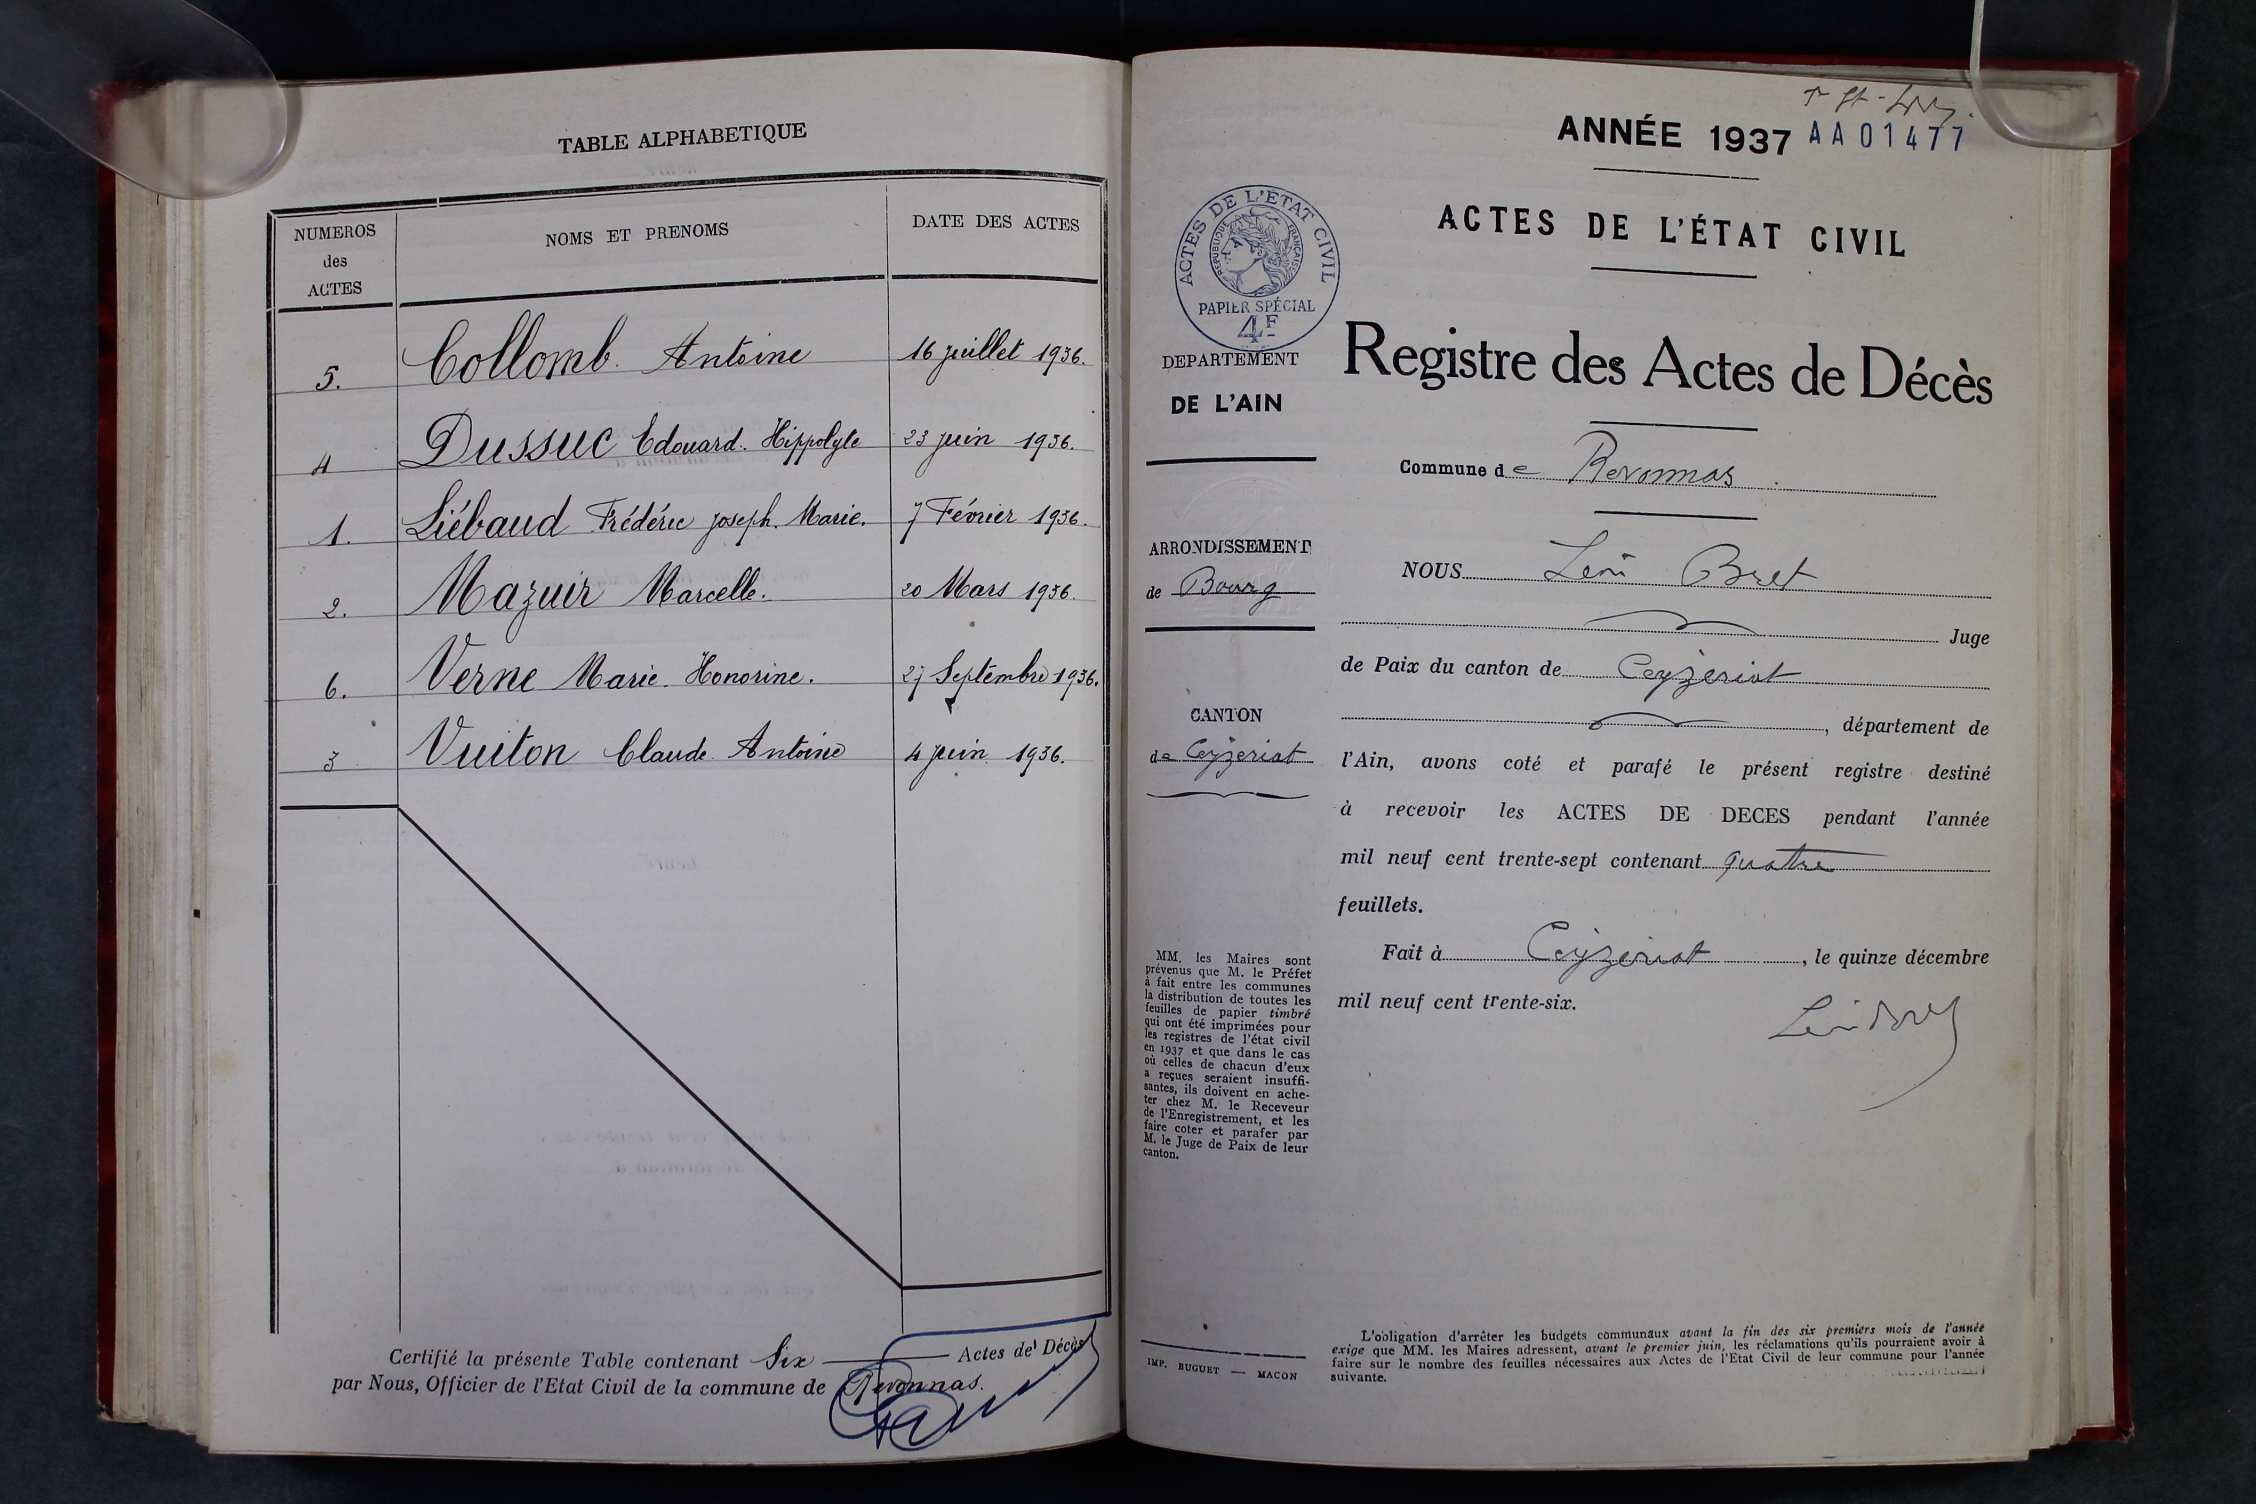 TABLE ALPHABETIQUE
NUMEROS
des
ACTES
NOMS ET PRENOMS
DATE DES ACTES
5. Collomb Antoine 16 juillet 1936.
4 Dussuc Edouard. Hippolyte 23 juin 1936.
1. Liébaud Frédéric Joseph. Marie. 7 Février 1936.
2. Mazuir Marcelle. 20 Mars 1936.
6. Verne Marie Honorine. 27 Septembre 1936.
3 Vuiton Claude Antoine 4 juin 1936.
Certifié la présente Table contenant Six Actes de Décès
par Nous, Officier de l'Etat Civil de la commune de Revonnas.
ANNÉE 1937 AA01477
ACTES DE L'ÉTAT CIVIL
ACTES DE L'ETAT CIVIL
REPUBLIQUE FRANÇAISE
PAPIER SPÉCIAL
4F
DEPARTEMENT
DE L'AIN
ARRONDISSEMENT
de Bourg
CANTON
de Ceyzeriat
MM. les Maires sont
prévenus que M. le Préfet
à fait entre les communes
la distribution de toutes les
feuilles de papier timbré
qui ont été imprimées pour
les registres de l'état civil
en 1937 et que dans le cas
où celles de chacun d'eux
a reçues seraient insuffi-
santes, ils doivent en ache-
ter chez M. le Receveur
de l'Enregistrement, et les
faire coter et parafer par
M. le Juge de Paix de leur
canton.
IMP. BUGUET — MACON
Registre des Actes de Décès
Commune de Revonnas.
NOUS Léon Bret
Juge
de Paix du canton de Ceyzeriat
, département de
l'Ain, avons coté et parafé le présent registre destiné
à recevoir les ACTES DE DECES pendant l'année
mil neuf cent trente-sept contenant quatre
feuillets.
Fait à Ceyzeriat, le quinze décembre
mil neuf cent trente-six.
L'obligation d'arrêter les budgets communaux avant la fin des six premiers mois de l'année
exige que MM. les Maires adressent, avant le premier juin, les réclamations qu'ils pourraient avoir à
faire sur le nombre des feuilles nécessaires aux Actes de l'Etat Civil de leur commune pour l'année
suivante.